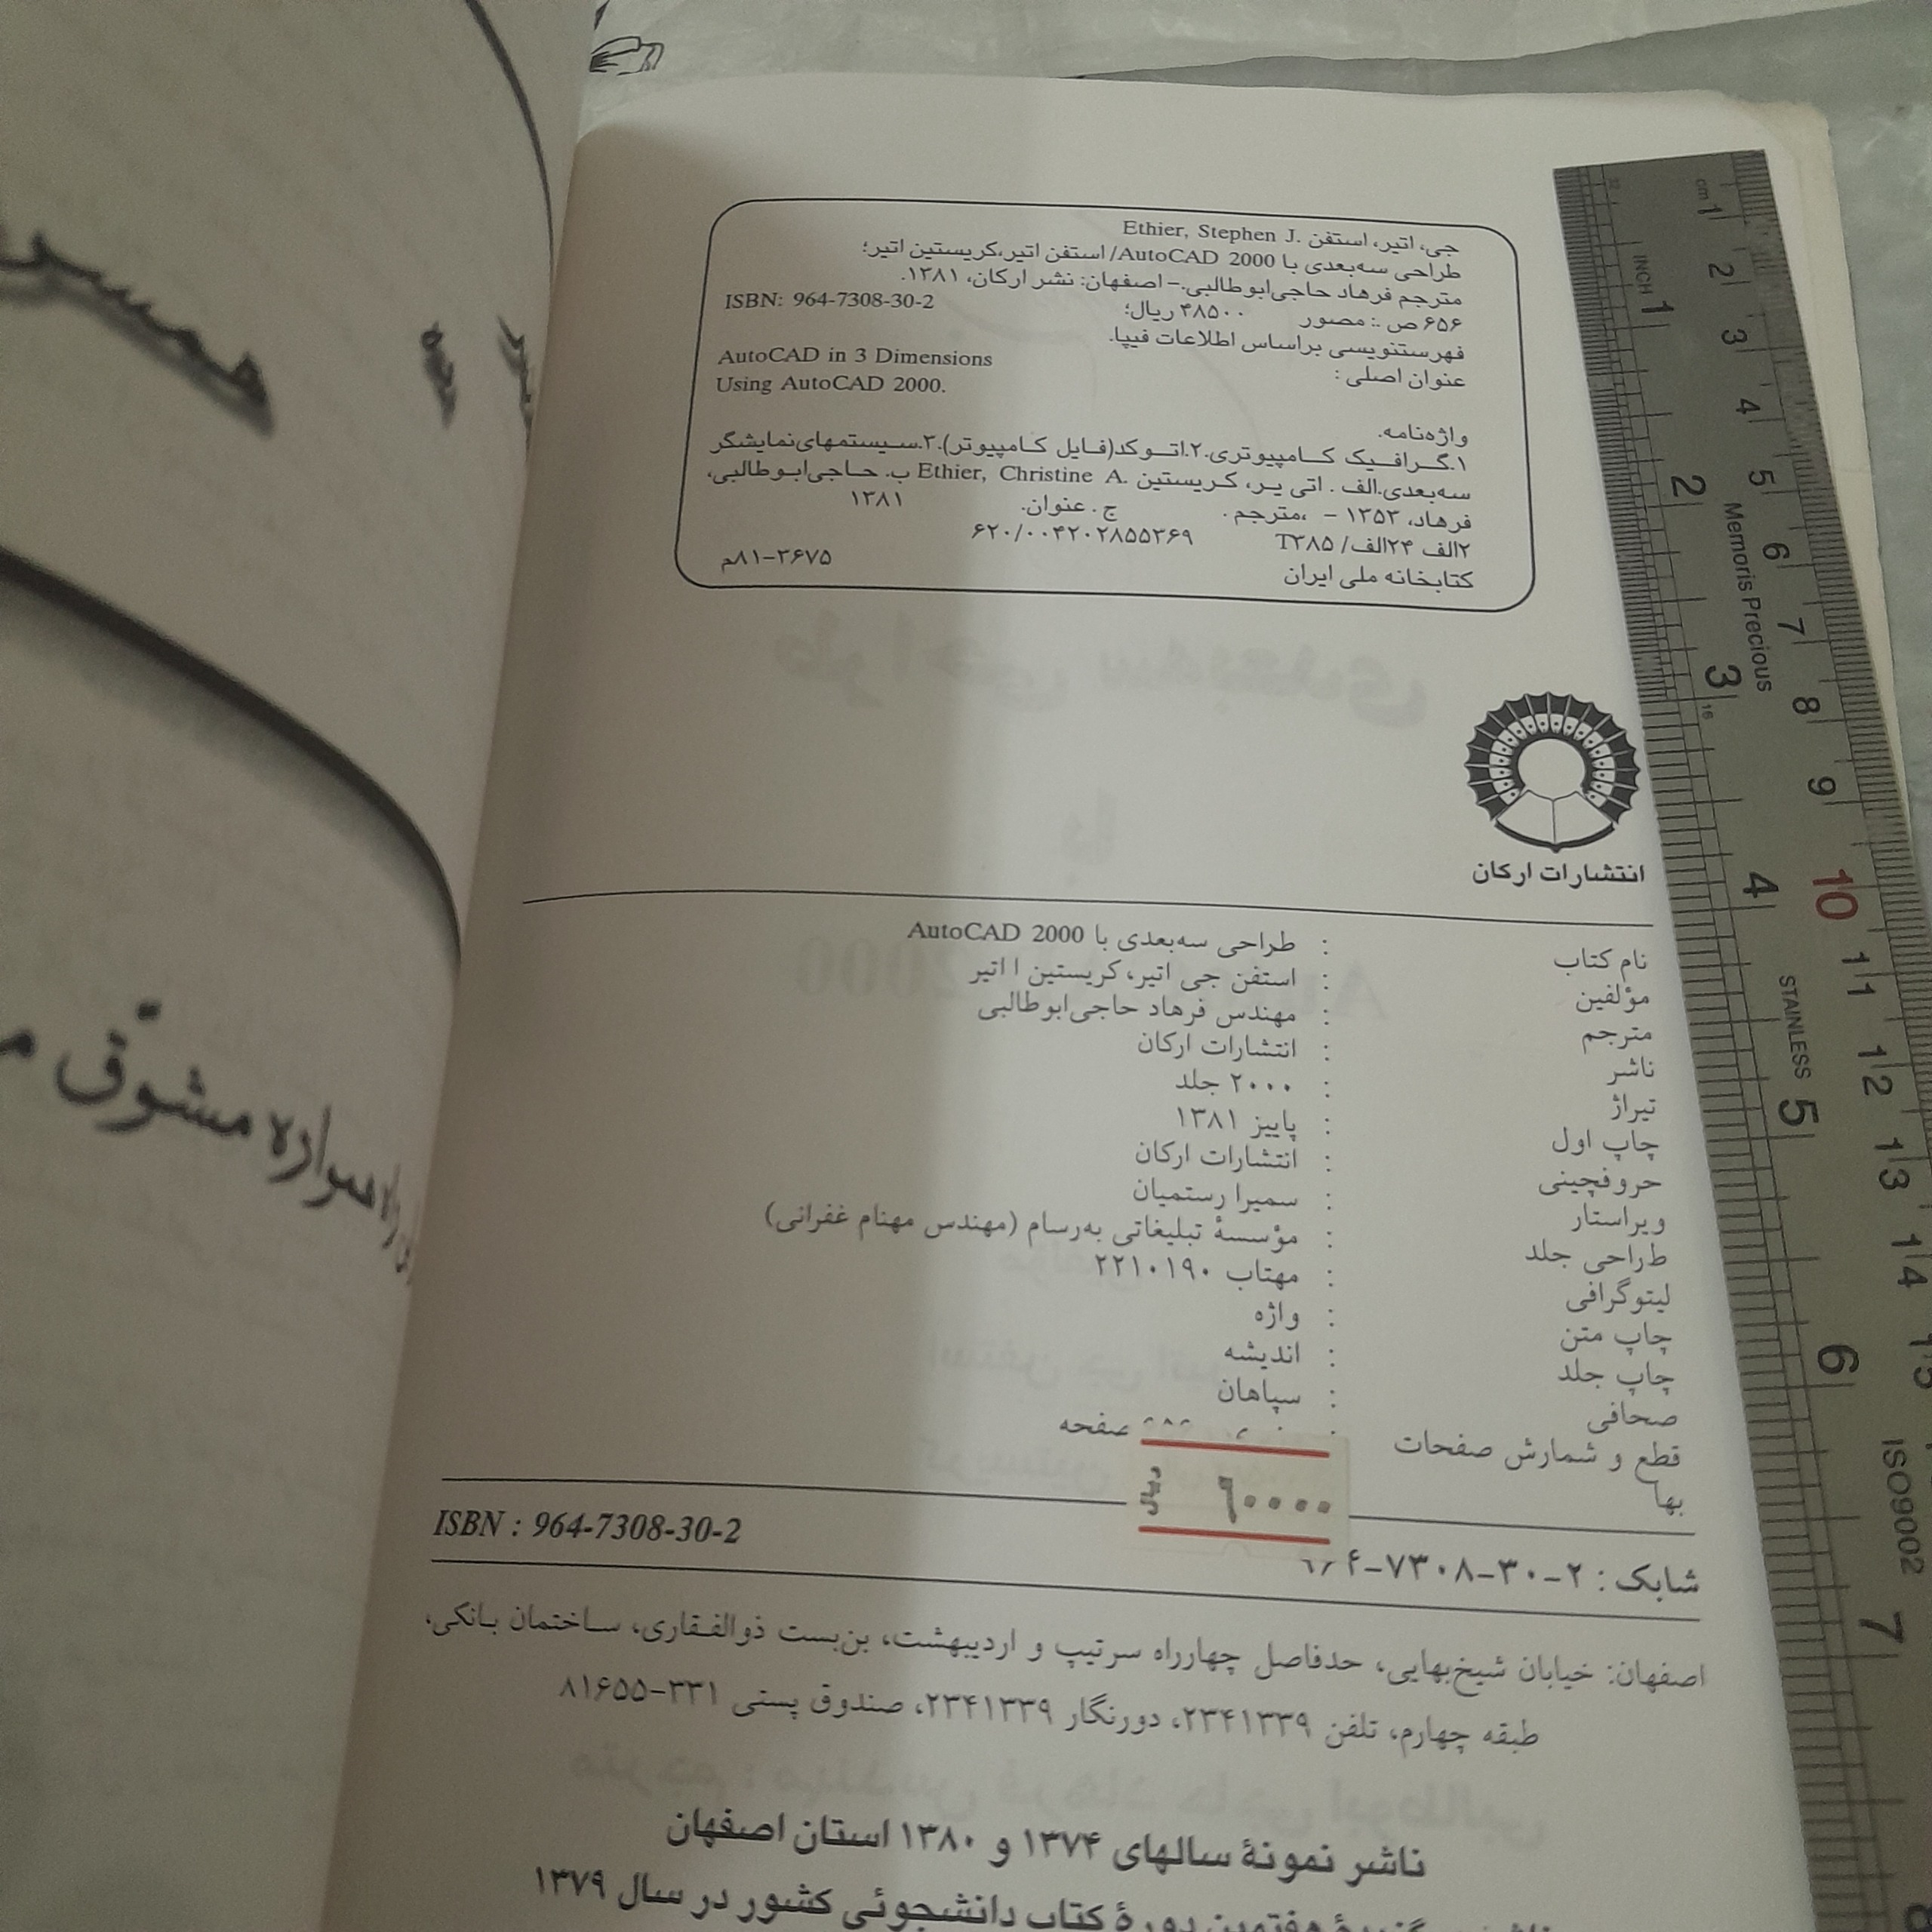 جی، اتیر، استفن Ethier, Stephen J.
طراحی سه‌بعدی با AutoCAD 2000/ استفن اتیر،کریستین اتیر؛
مترجم فرهاد حاجی‌ابوطالبی.– اصفهان: نشر ارکان، ۱۳۸۱.
۶۵۶ ص .: مصور ۴۸۵۰۰ ریال؛ ISBN: 964-7308-30-2
فهرستنویسی براساس اطلاعات فیپا.
عنوان اصلی : AutoCAD in 3 Dimensions
Using AutoCAD 2000.
واژه‌نامه.
۱.گرافیک کامپیوتری.۲.اتوکد(فایل کامپیوتر).۳.سیستمهای‌نمایشگر
سه‌بعدی.الف . اتی یر، کریستین Ethier, Christine A. ب. حاجی‌ابوطالبی،
فرهاد، ۱۳۵۳ – ،مترجم . ج . عنوان. ۱۳۸۱
۲الف ۲۴الف/ T۳۸۵ ۶۲۰/۰۰۴۲۰۲۸۵۵۳۶۹
کتابخانه ملی ایران ۸۱–۳۶۷۵م
انتشارات ارکان
نام کتاب : طراحی سه‌بعدی با AutoCAD 2000
مؤلفین : استفن جی اتیر، کریستین ا اتیر
مترجم : مهندس فرهاد حاجی‌ابوطالبی
ناشر : انتشارات ارکان
تیراژ : ۲۰۰۰ جلد
چاپ اول : پاییز ۱۳۸۱
حروفچینی : انتشارات ارکان
ویراستار : سمیرا رستمیان
طراحی جلد : مؤسسهٔ تبلیغاتی به‌رسام (مهندس مهنام غفرانی)
لیتوگرافی : مهتاب ۲۲۱۰۱۹۰
چاپ متن : واژه
چاپ جلد : اندیشه
صحافی : سپاهان
قطع و شمارش صفحات : صفحه
بها ۹۰۰۰۰ ریال
ISBN : 964-7308-30-2
شابک : ۲–۳۰–۷۳۰۸–۹۶۴
اصفهان: خیابان شیخ‌بهایی، حدفاصل چهارراه سرتیپ و اردیبهشت، بن‌بست ذوالفقاری، ساختمان بانکی،
طبقه چهارم، تلفن ۲۳۴۱۳۳۹، دورنگار ۲۳۴۱۳۳۹، صندوق پستی ۳۳۱–۸۱۶۵۵
ناشر نمونهٔ سالهای ۱۳۷۴ و ۱۳۸۰ استان اصفهان
هفتمین دورهٔ کتاب دانشجوئی کشور در سال ۱۳۷۹
همسر
همواره مشوّق
cm 1 2 3 4 5 6 7 8 9 10 11 12 13 14 15
INCH 1 2 3 4 5 6 7
Memoris Precious
STAINLESS
ISO9002